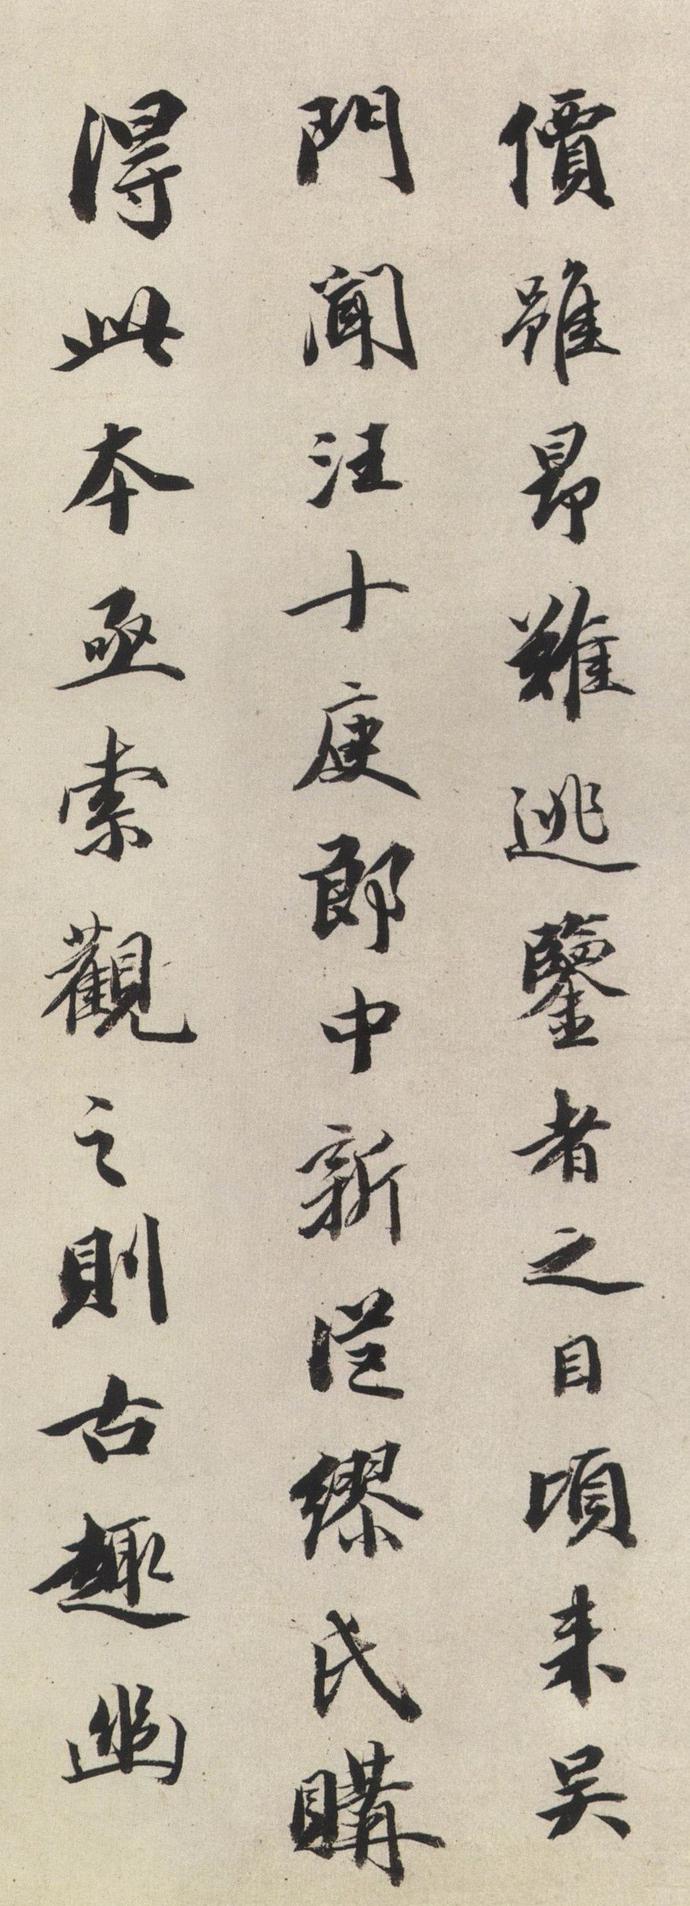 價雖昂難逃鑒者之目頃来吴
門聞汪十庚郎中新從繆氏購
得此本亟索觀之則古趣幽